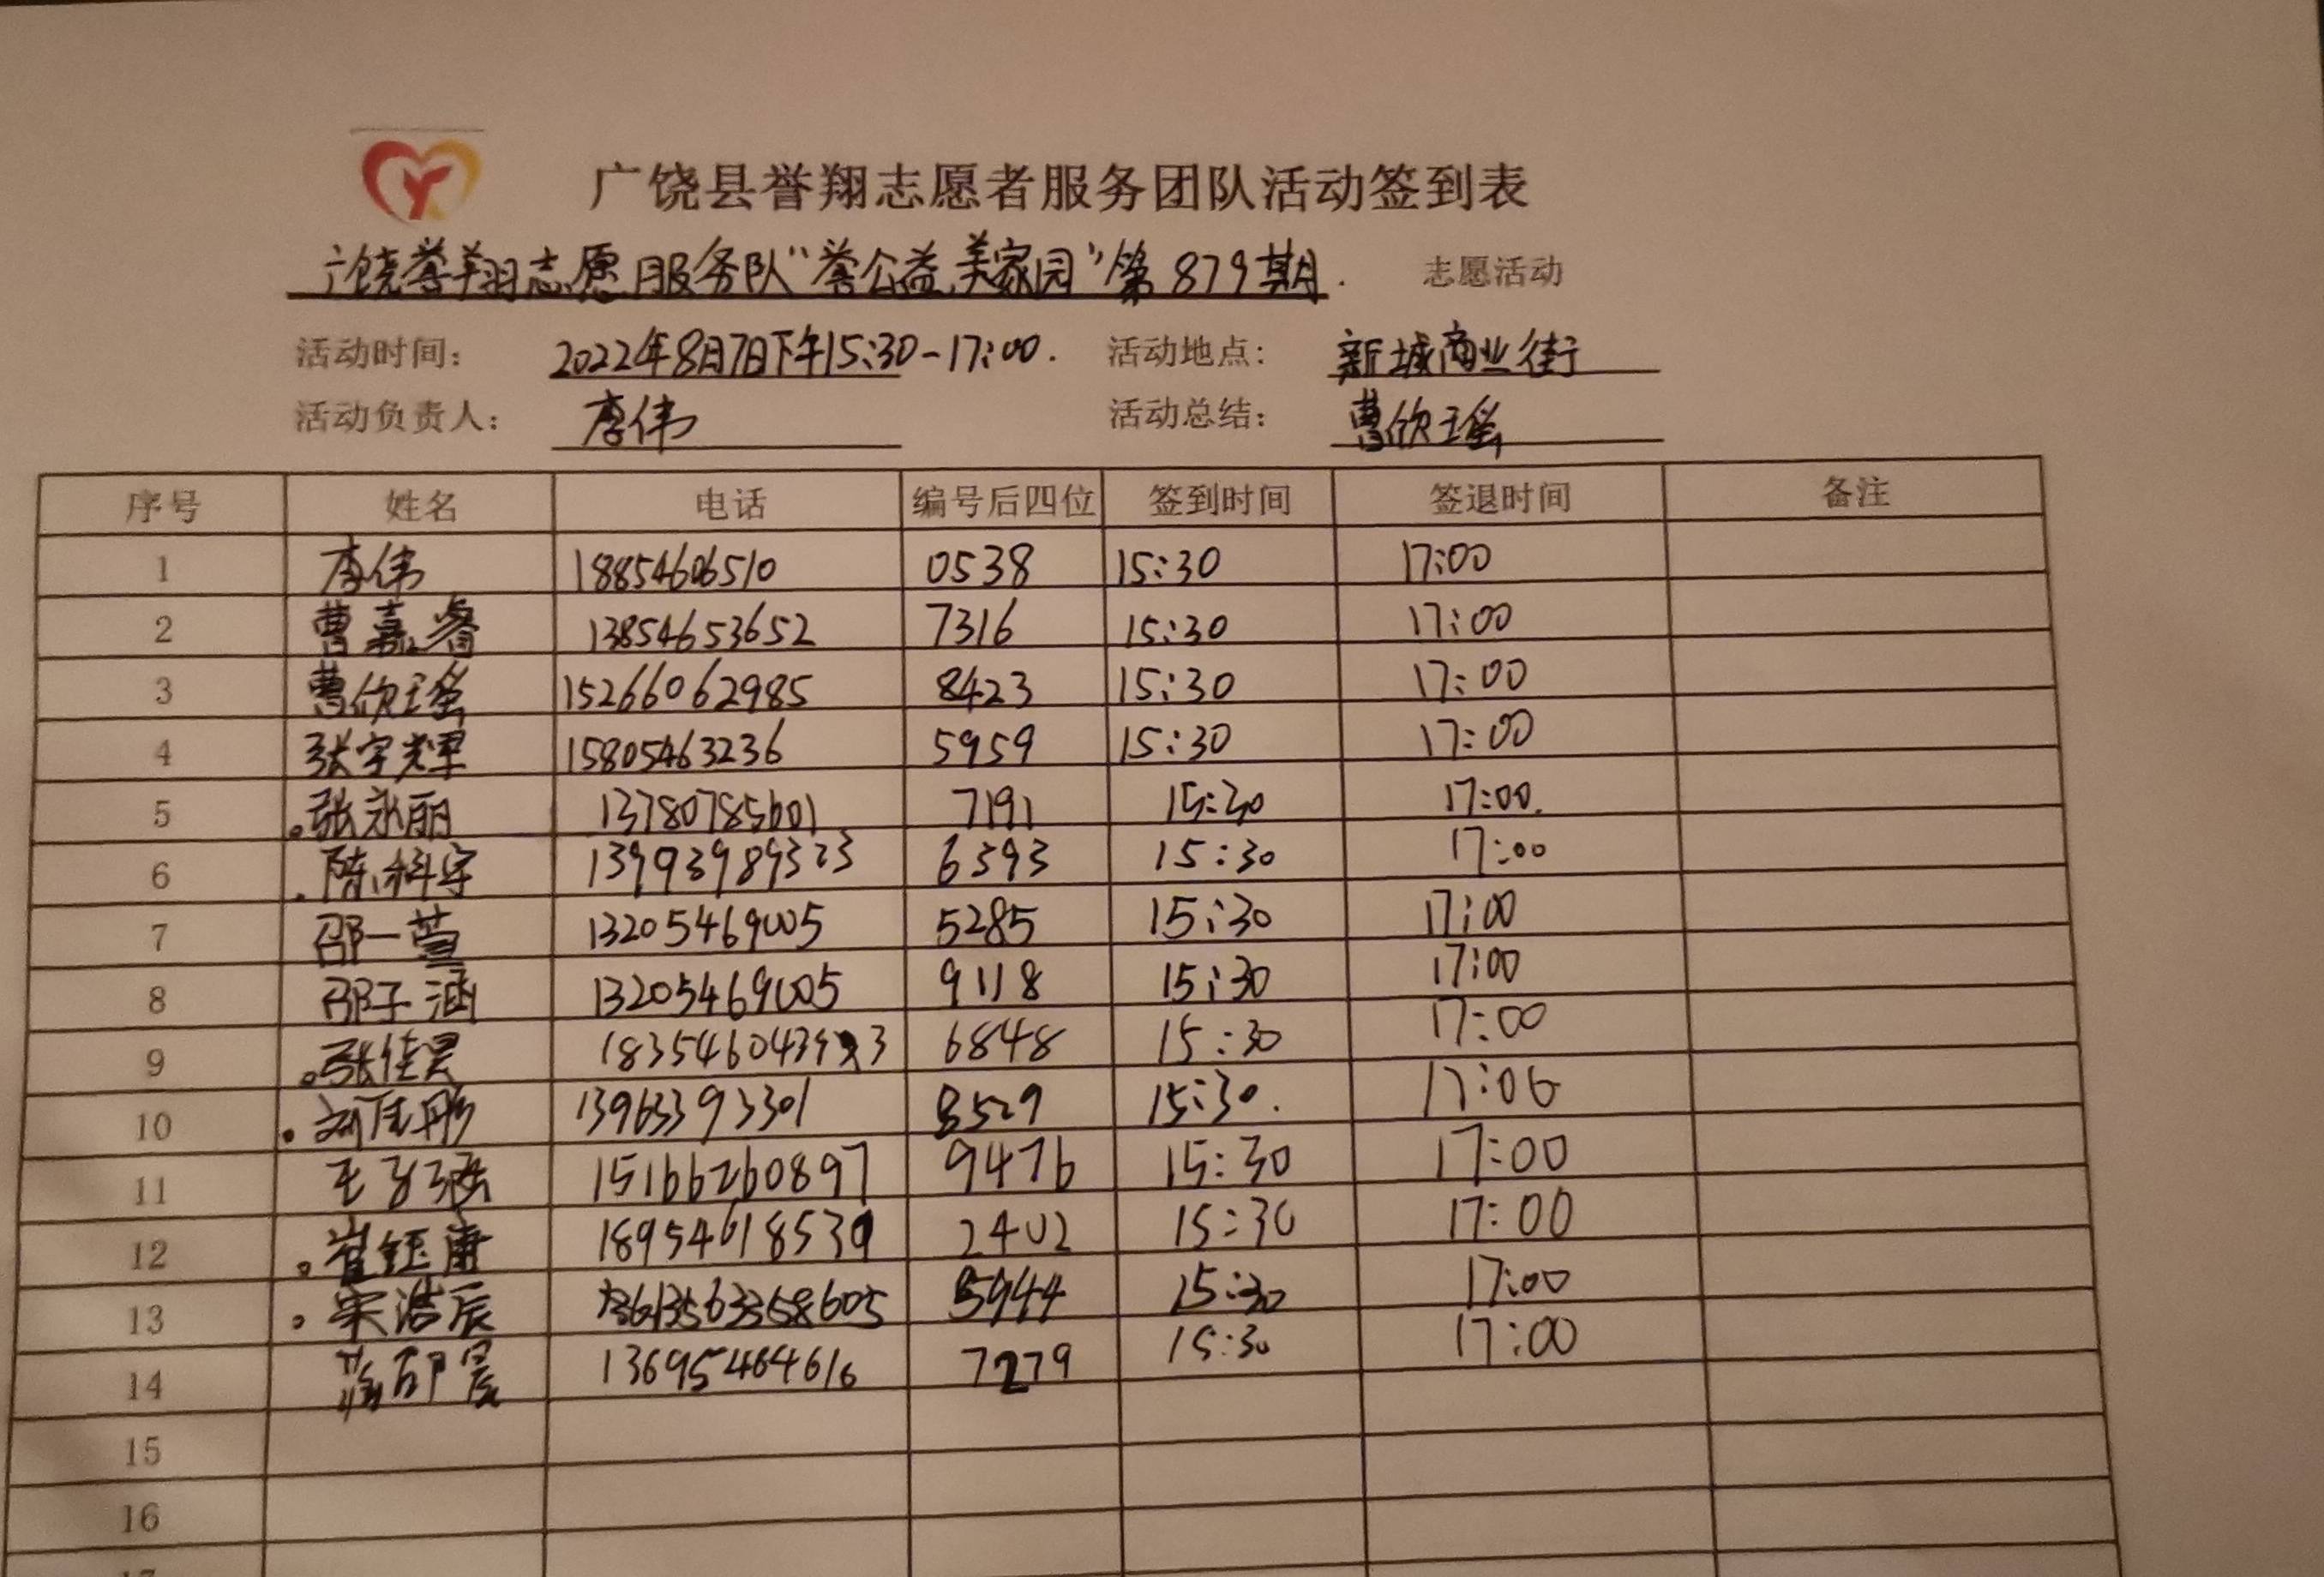 广饶县誉翔志愿者服务团队活动签到表
广饶誉翔志愿服务队“誉公益,美家园”第879期. 志愿活动
活动时间: 2022年8月7日下午15:30-17:00. 活动地点: 新城商业街
活动负责人: 李伟 活动总结: 曹欣瑶
序号 姓名 电话 编号后四位 签到时间 签退时间 备注
1 李伟 18854606510 0538 15:30 17:00
2 曹嘉睿 13854653652 7316 15:30 17:00
3 曹欣瑶 15266062985 8423 15:30 17:00
4 张宇辉 15805463236 5959 15:30 17:00
5 张永丽 13780785601 7191 15:30 17:00.
6 陈科宇 13993989323 6593 15:30 17:00
7 邵一萱 13205469005 5285 15:30 17:00
8 邵子涵 13205469005 9118 15:30 17:00
9 张佳昊 6848 15:30 17:00
10 刘佳彤 13963393301 8529 15:30. 17:00
11 王 15166260897 9476 15:30 17:00
12 崔钰康 18954618539 2402 15:30 17:00
13 宋浩辰 5944 15:30 17:00
14 13695464616 7279 15:30 17:00
15
16
17